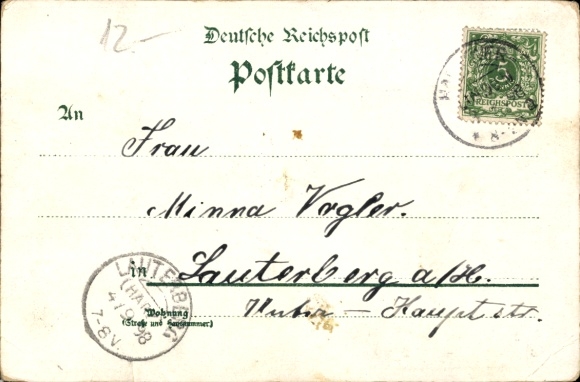 12.-
Deutsche Reichspost
Postkarte
5
REICHSPOST
An
Frau
Minna Vogler.
in Lauterberg a/H.
Wohnung
(Straße und Hausnummer)
Hauptstr.
LAUTERBERG
(HARZ)
4/9 98
7-8V.